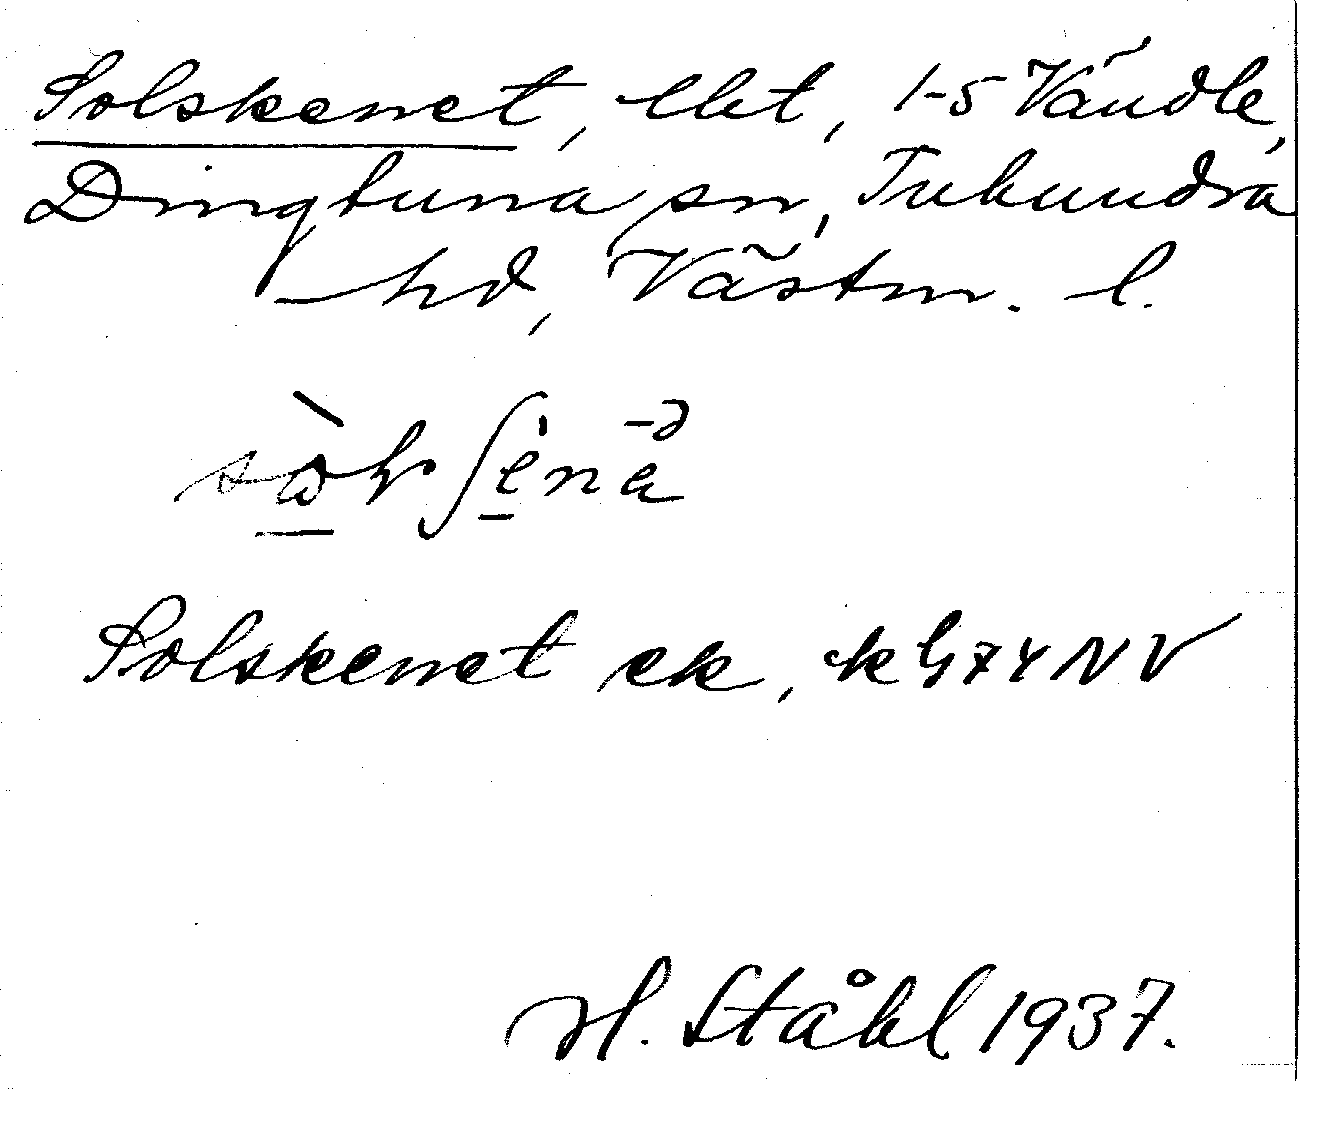 Solskenet, lht, 1-5 Vändle,
Dingtuna sn, Tuhundra
hd, Västm. l.
Solskenet ek, k G74NV
H. Ståhl 1937.